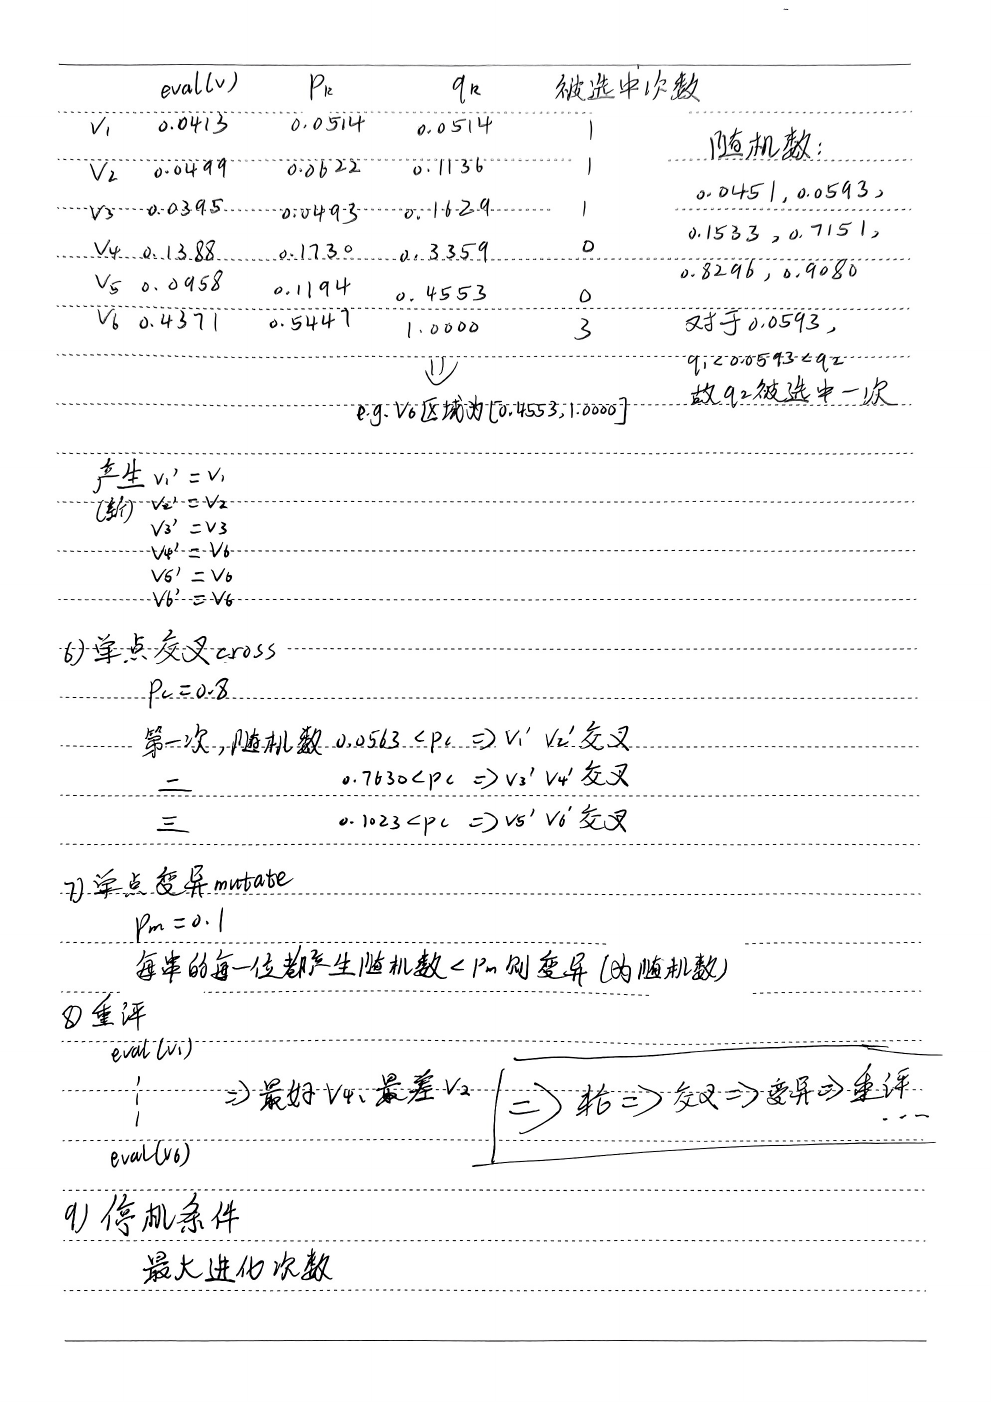 eval(v) Pk qk 被选中次数
V1 0.0413 0.0514 0.0514 1
V2 0.0499 0.0622 0.1136 1
V3 0.0395 0.0493 0.1629 1
V4 0.1388 0.1730 0.3359 0
V5 0.0958 0.1194 0.4553 0
V6 0.4371 0.5447 1.0000 3
随机数:
0.0451, 0.0593,
0.1533, 0.7151,
0.8296, 0.9080
对于0.0593,
q1<0.0593<q2
故q2被选中一次
⇓
e.g. V6区域为[0.4553,1.0000]
产生 V1'=V1
(新) V2'=V2
V3'=V3
V4'=V6
V5'=V6
V6'=V6
6)单点交叉cross
Pc=0.8
第一次,随机数 0.0563<Pc ⇒ V1' V2'交叉
二 0.7630<Pc ⇒ V3' V4'交叉
三 0.1023<Pc ⇒ V5' V6'交叉
7)单点变异mutate
Pm=0.1
每串的每一位都产生随机数<Pm则变异(为随机数)
8)重评
eval(V1)
⇒最好V4、最差V2
⇒轮⇒交叉⇒变异⇒重评
...
eval(V6)
9)停机条件
最大进化次数